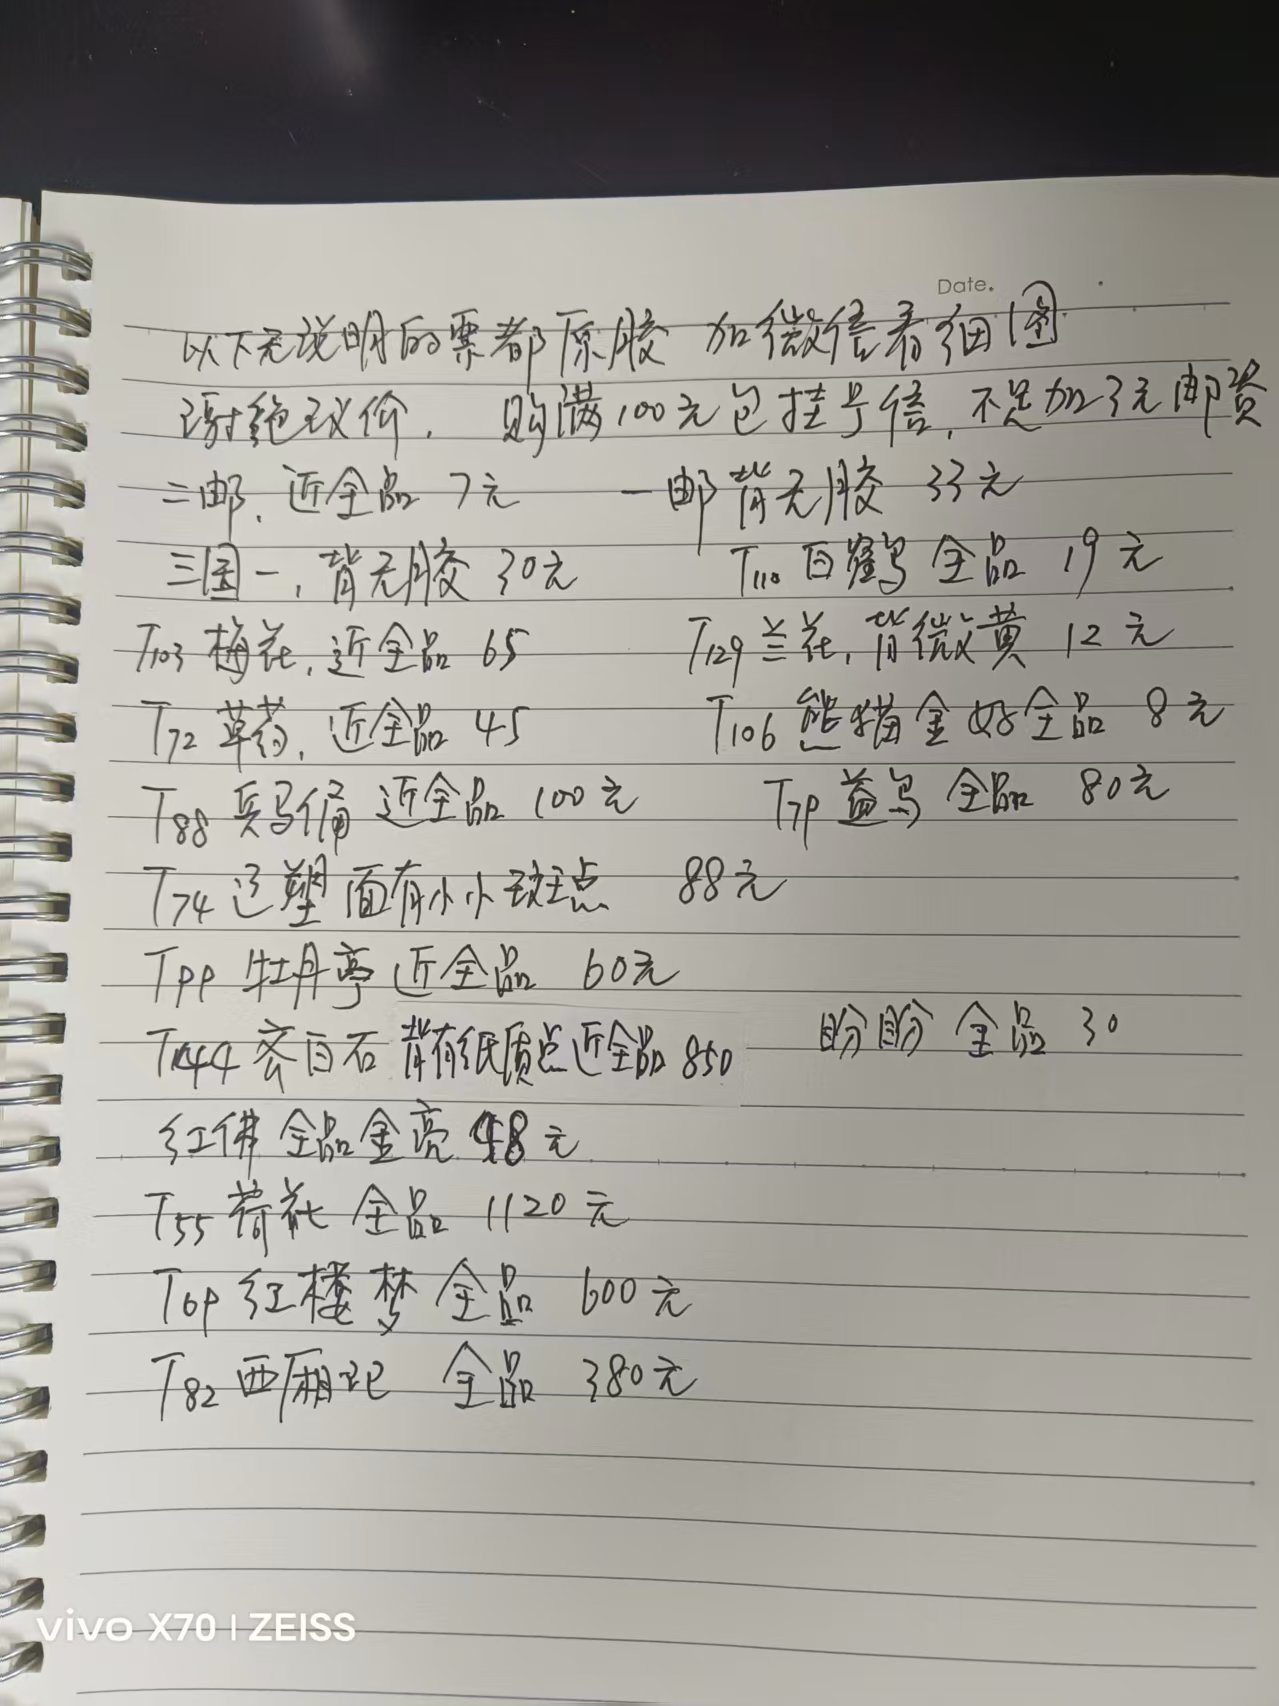 Date.
以下无说明的票都原胶 加微信看细图
谢绝议价. 购满100元包挂号信,不足加3元邮资
二邮. 近全品 7元 一邮背无胶 33元
三国一,背无胶 30元 T110 白鹤 全品 19元
T103 梅花,近全品 65 T129 兰花,背微黄 12元
T72 草药,近全品 45 T106 熊猫金好全品 8元
T88 兵马俑 近全品 100元 T79 益鸟 全品 80元
T74 辽塑 面有小小斑点 88元
T99 牡丹亭 近全品 60元
T44 齐白石 背有纸质点近全品 850 盼盼 全品 30
红佛 全品金亮 48元
T55 荷花 全品 1120元
T69 红楼梦 全品 600元
T82 西厢记 全品 380元
vivo X70 | ZEISS